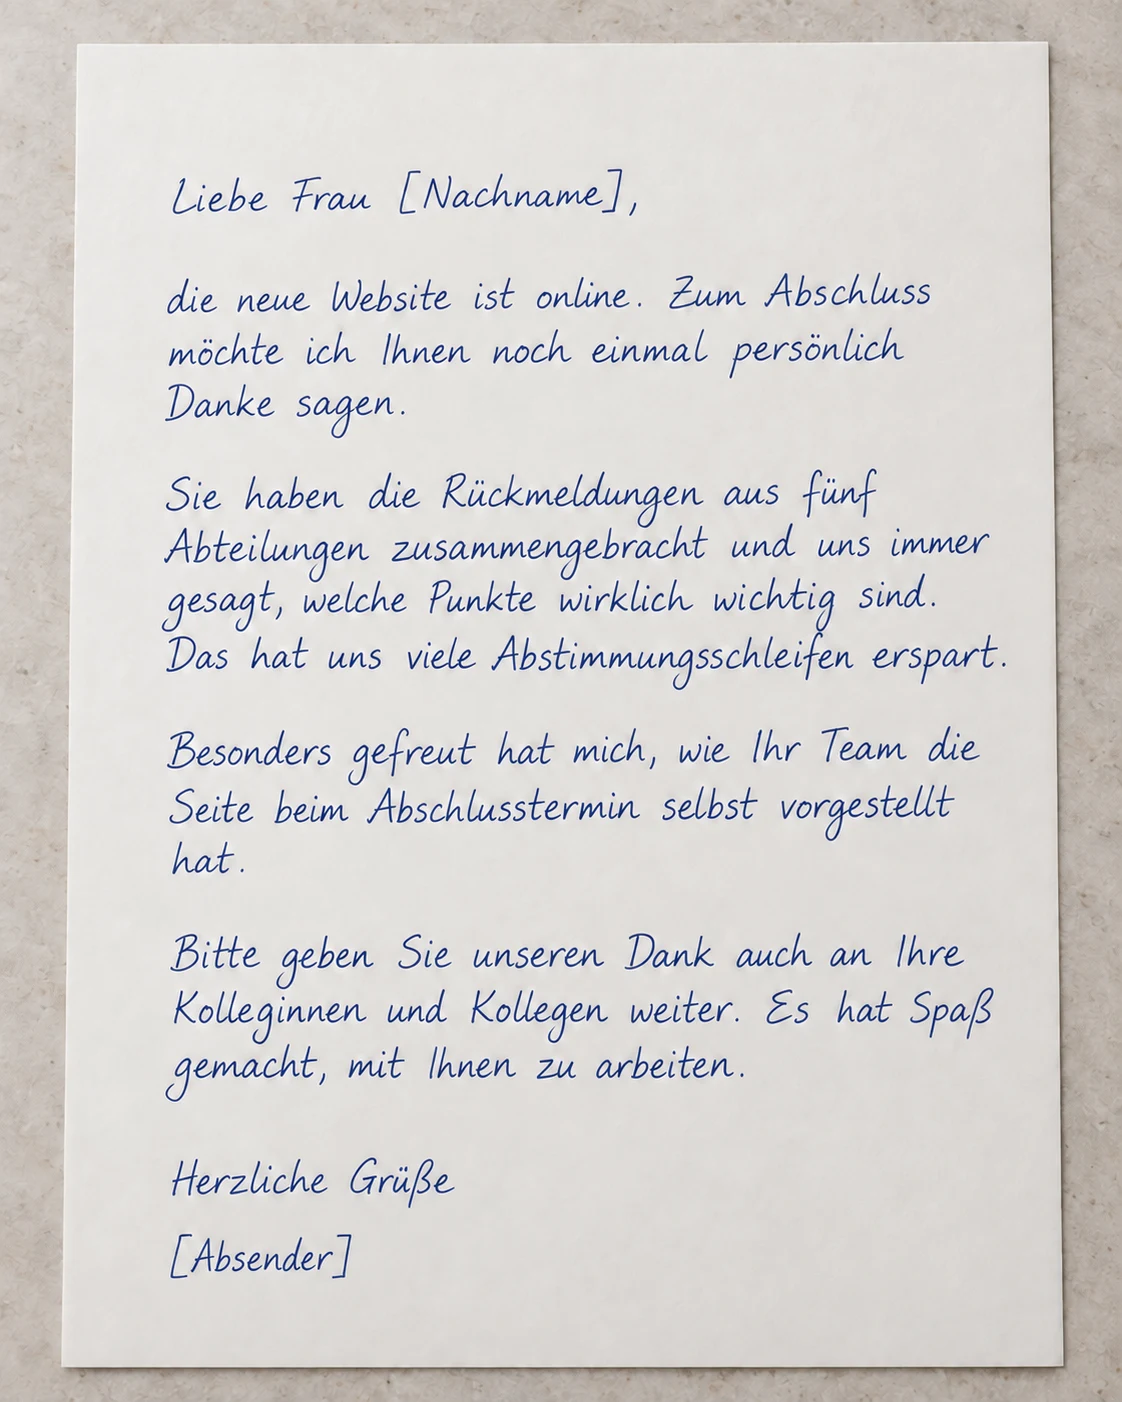 Liebe Frau [Nachname],
die neue Website ist online. Zum Abschluss
möchte ich Ihnen noch einmal persönlich
Danke sagen.
Sie haben die Rückmeldungen aus fünf
Abteilungen zusammengebracht und uns immer
gesagt, welche Punkte wirklich wichtig sind.
Das hat uns viele Abstimmungsschleifen erspart.
Besonders gefreut hat mich, wie Ihr Team die
Seite beim Abschlusstermin selbst vorgestellt
hat.
Bitte geben Sie unseren Dank auch an Ihre
Kolleginnen und Kollegen weiter. Es hat Spaß
gemacht, mit Ihnen zu arbeiten.
Herzliche Grüße
[Absender]